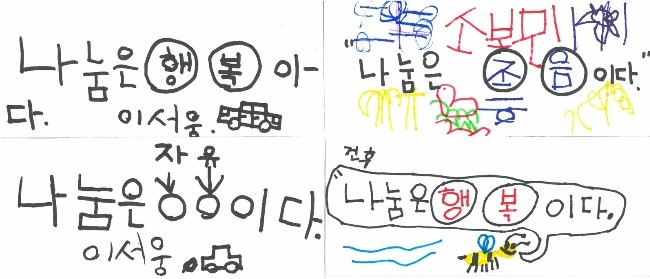 나눔은 행복이-
다. 이서웅.
소보민
"나눔은 조음이다."
자유
나눔은 ○○이다.
이서웅
전후
"나눔은 행복이다.